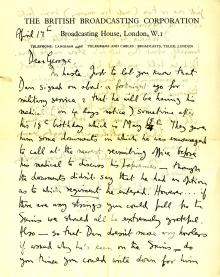 THE BRITISH BROADCASTING CORPORATION
Broadcasting House, London, W.1
TELEPHONE: LANGHAM 4468 TELEGRAMS AND CABLES: BROADCASTS, TELEX, LONDON
April 17th
Dear George
In haste. Just to let you know that
Dan signed on about a fortnight ago for
military service & that he will be having his
medical (on 14 days notice) sometime after
his 18th birthday which is May 4th. They gave
him some documents in which he was encouraged
to call at the nearest recruiting office before
his medical to discuss his though
the documents didn't say that he had an option
as to which regiment he entered. However, if
there are any strings you could pull for the
we should all be extremely grateful.
Also — so that Dan doesn't miss any
if asked why he's keen on the do
you think you could write down for him